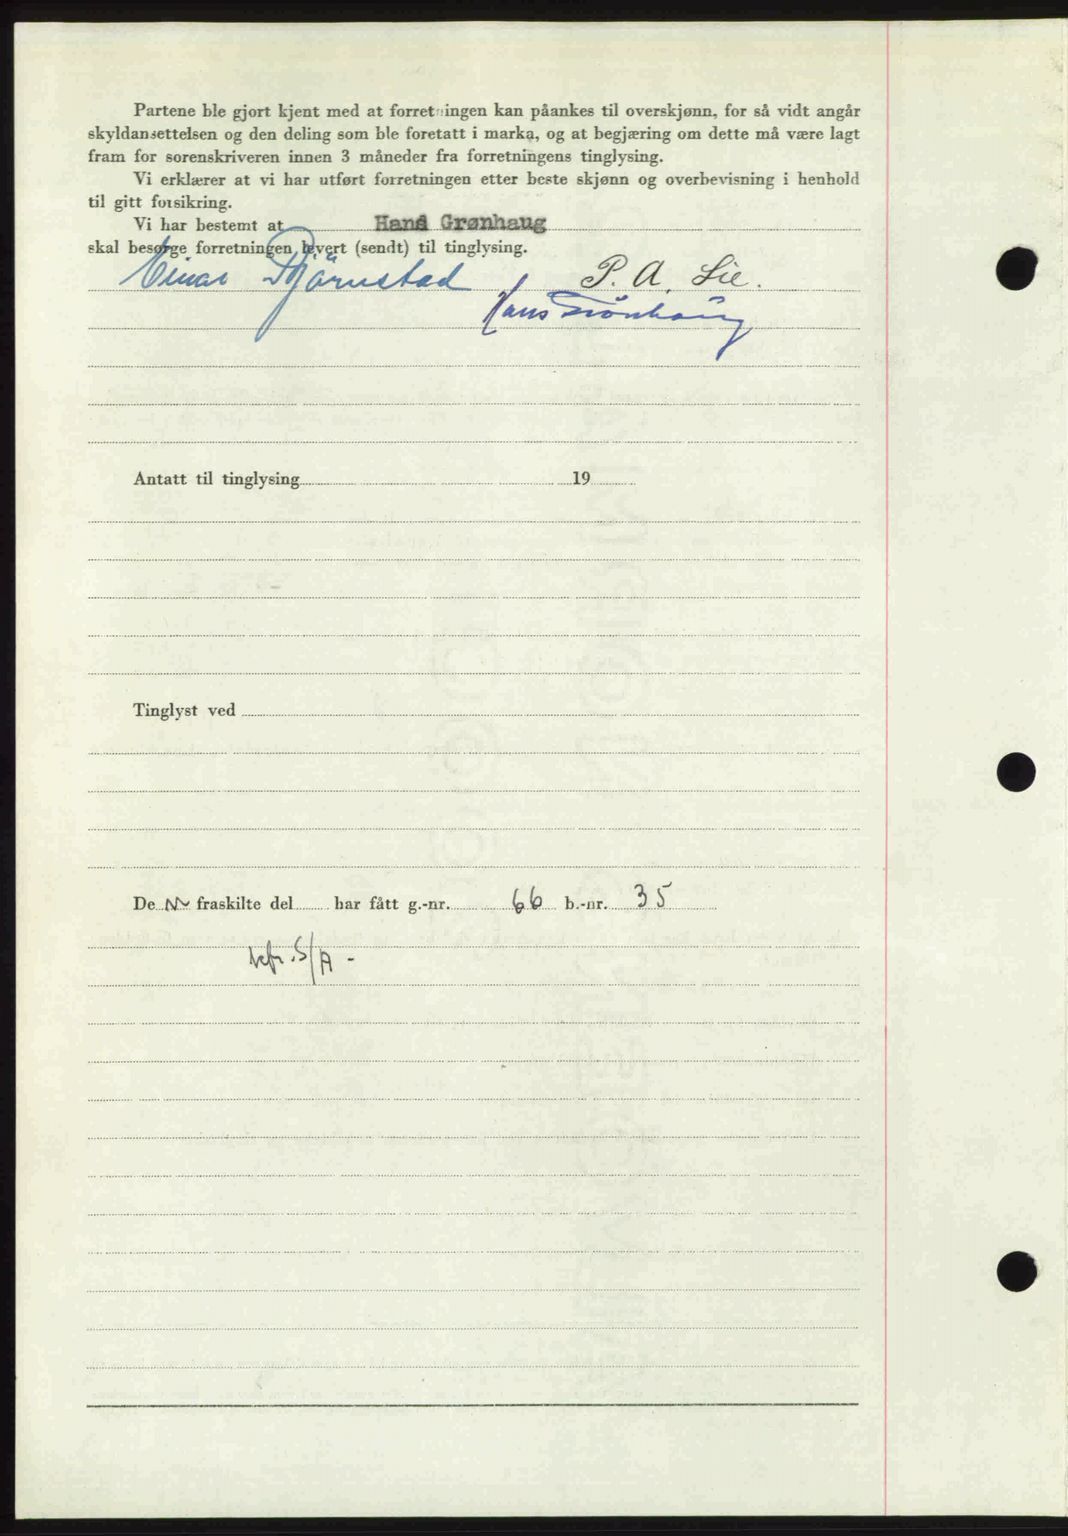 Partene ble gjort kjent med at forretningen kan påankes til overskjønn, for så vidt angår
skyldansettelsen og den deling som ble foretatt i marka, og at begjæring om dette må være lagt
fram for sorenskriveren innen 3 måneder fra forretningens tinglysing.
Vi erklærer at vi har utført forretningen etter beste skjønn og overbevisning i henhold
til gitt forsikring.
Vi har bestemt at Hans Grønhaug
skal besørge forretningen levert (sendt) til tinglysing.
Einar Bjørnstad P. A. Lie.
Hans Grønhaug
Antatt til tinglysing 19
Tinglyst ved
De fraskilte del har fått g.-nr. 66 b.-nr. 35
S/A -